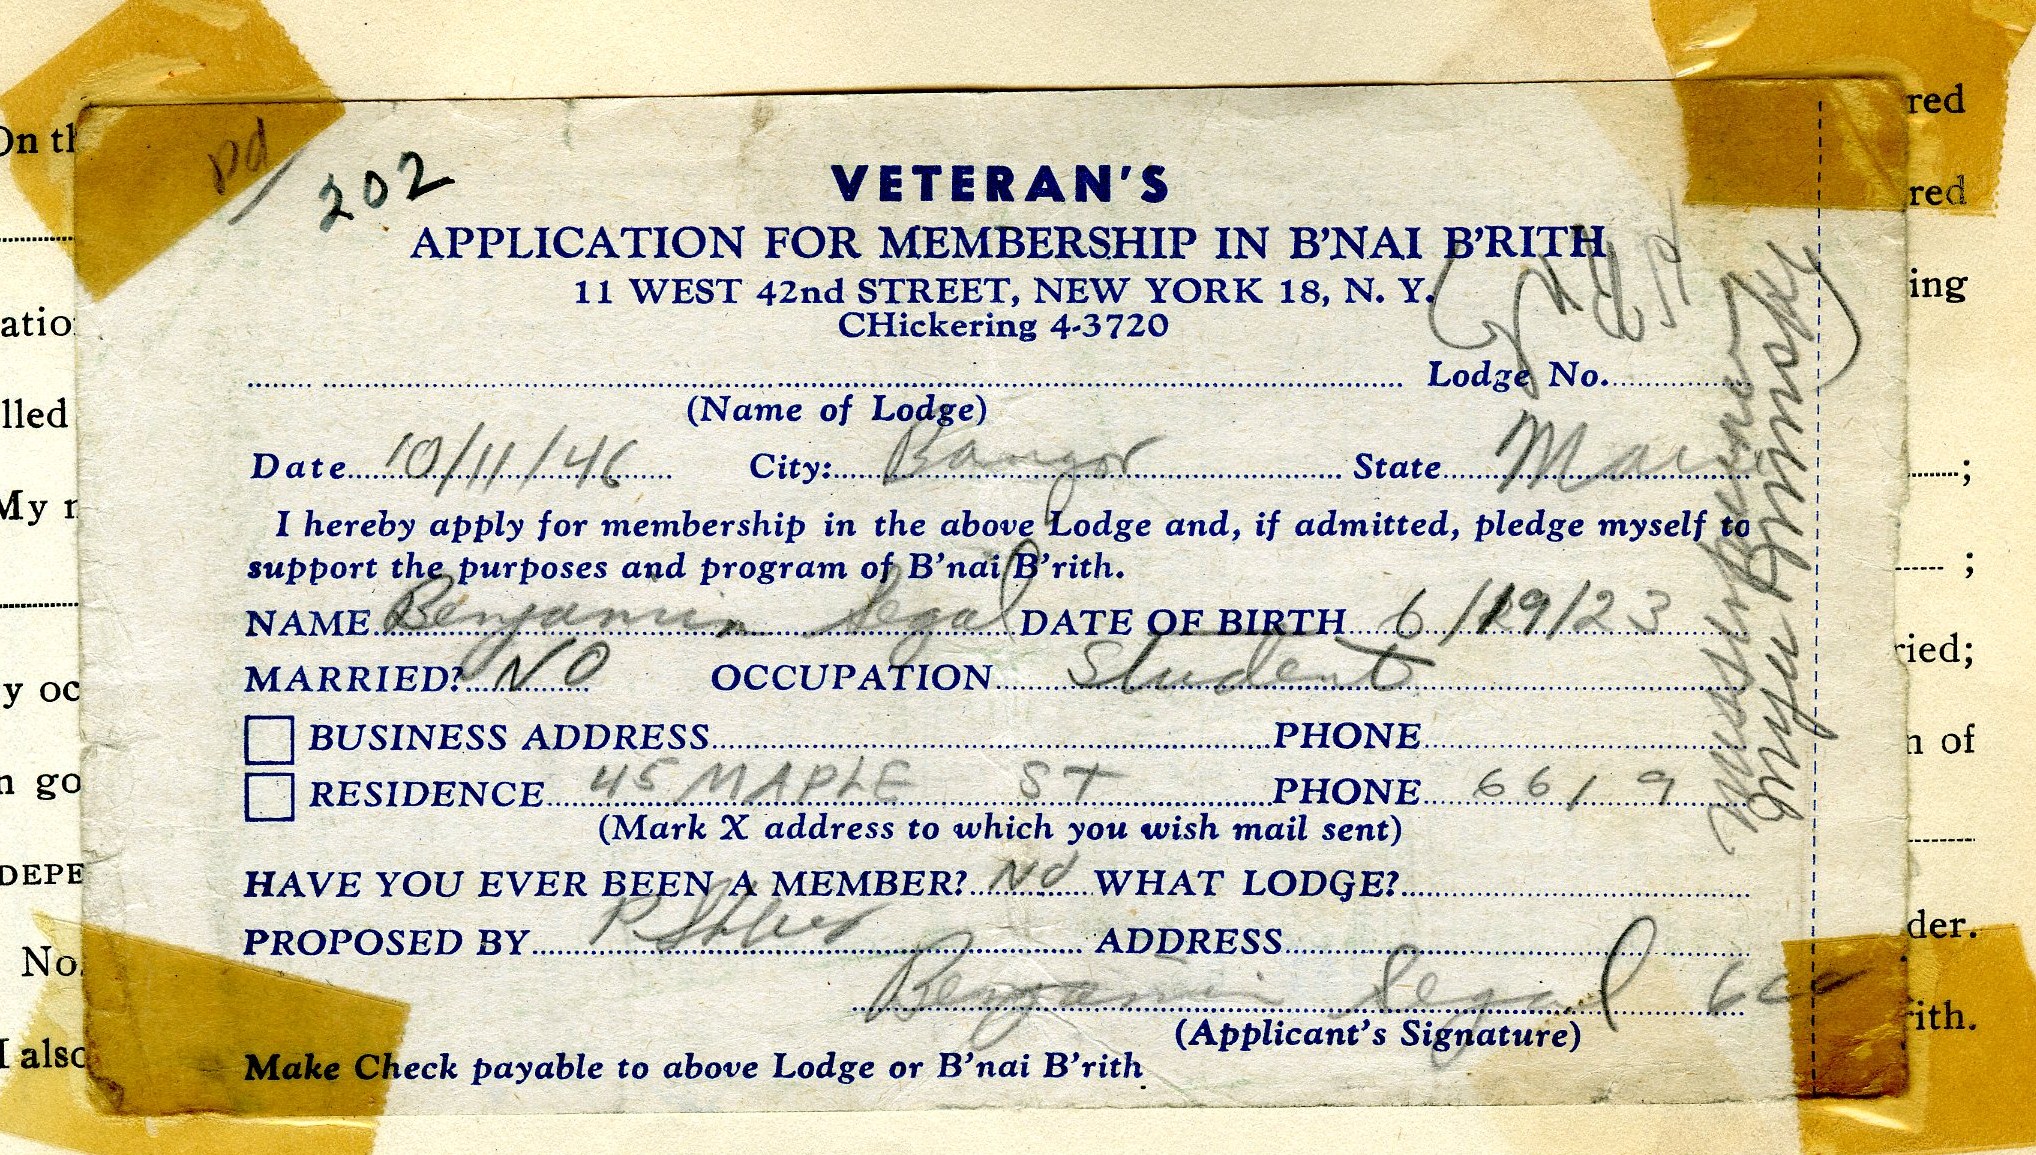 On th
red
pd
202
VETERAN'S
red
APPLICATION FOR MEMBERSHIP IN B'NAI B'RITH
11 WEST 42nd STREET, NEW YORK 18, N. Y.
ing
atio
CHickering 4-3720
Lodge No.
(Name of Lodge)
lled
Date 10/11/46 City: Bangor State Maine
My n
I hereby apply for membership in the above Lodge and, if admitted, pledge myself to
support the purposes and program of B'nai B'rith.
NAME Benjamin Segal DATE OF BIRTH 6/19/23
MARRIED? NO OCCUPATION Student
ried;
y oc
BUSINESS ADDRESS PHONE
n of
n go
RESIDENCE 45 MAPLE ST PHONE 6619
(Mark X address to which you wish mail sent)
DEPE
HAVE YOU EVER BEEN A MEMBER? No WHAT LODGE?
der.
PROPOSED BY ADDRESS
No.
Benjamin Segal
rith.
(Applicant's Signature)
I also
Make Check payable to above Lodge or B'nai B'rith